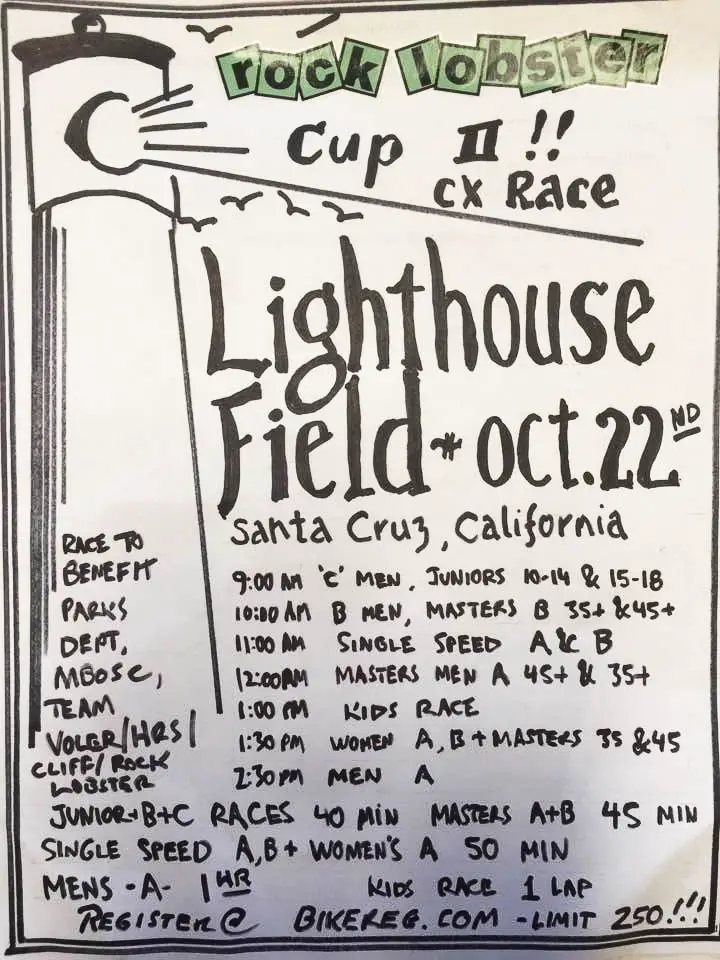 rock lobster
Cup II !!
CX Race
Lighthouse
Field * Oct. 22ND
Santa Cruz, California
RACE TO
BENEFIT
PARKS
DEPT,
MBOSC,
TEAM
VOLER/HRS/
CLIFF/ROCK
LOBSTER
9:00 AM 'C' MEN, JUNIORS 10-14 & 15-18
10:00 AM B MEN, MASTERS B 35+ & 45+
11:00 AM SINGLE SPEED A & B
12:00 PM MASTERS MEN A 45+ & 35+
1:00 PM KIDS RACE
1:30 PM WOMEN A, B + MASTERS 35 & 45
2:30 PM MEN A
JUNIOR+B+C RACES 40 MIN MASTERS A+B 45 MIN
SINGLE SPEED A,B + WOMEN'S A 50 MIN
MENS -A- 1 HR KIDS RACE 1 LAP
REGISTER @ BIKEREG.COM - LIMIT 250!!!